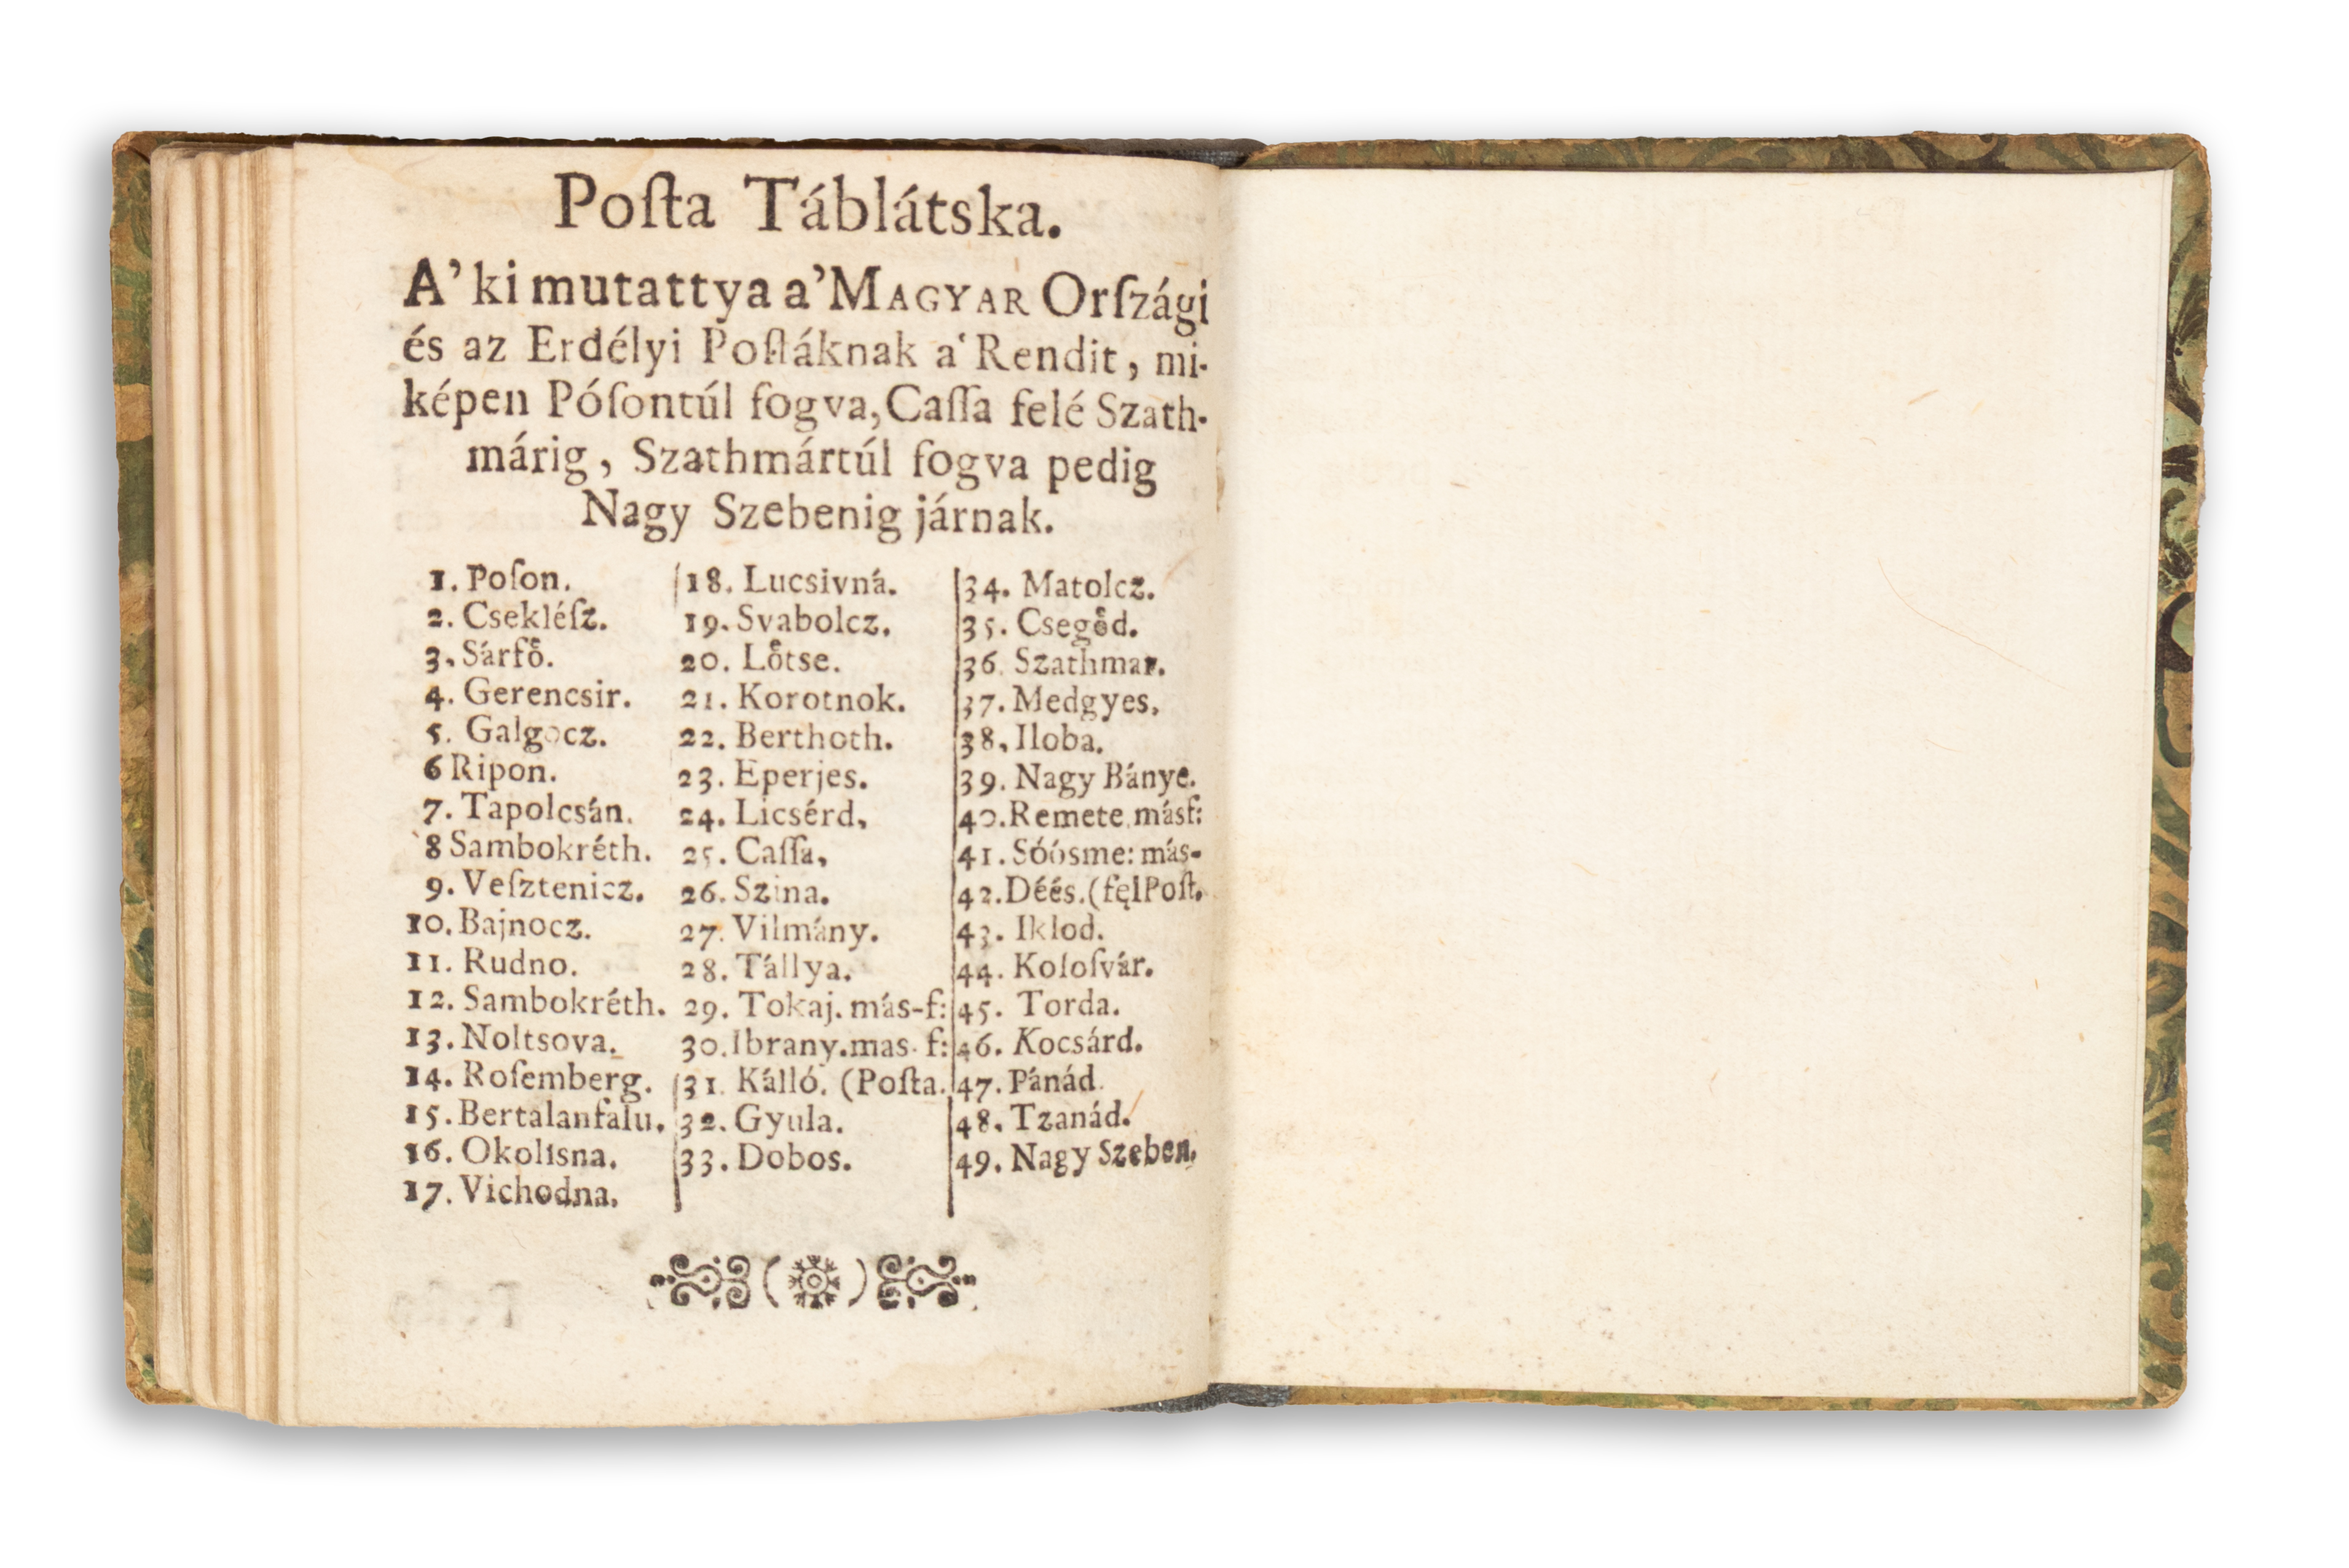 Poſta Táblátska.
A' ki mutattya a' MAGYAR Orſzági
és az Erdélyi Poſtáknak a' Rendit, mi-
képen Póſontúl fogva, Caſſa felé Szath-
márig, Szathmártúl fogva pedig
Nagy Szebenig járnak.
1. Poſon.
2. Csekléſz.
3. Sárfoͤ.
4. Gerencsir.
5. Galgocz.
6 Ripon.
7. Tapolcsán.
8 Sambokréth.
9. Veſztenicz.
10. Bajnocz.
11. Rudno.
12. Sambokréth.
13. Noltsova.
14. Roſemberg.
15. Bertalanfalu.
16. Okolisna.
17. Vichodna.
18. Lucsivná.
19. Svabolcz.
20. Loͤtse.
21. Korotnok.
22. Berthoth.
23. Eperjes.
24. Licsérd,
25. Caſſa,
26. Szina.
27. Vilmány.
28. Tállya.
29. Tokaj. más-f:
30. Ibrany. mas- f:
31. Kálló. (Poſta.
32. Gyula.
33. Dobos.
34. Matolcz.
35. Csegoͤd.
36. Szathmar.
37. Medgyes,
38, Iloba.
39. Nagy Bánye.
40. Remete másf:
41. Sóósme: más-
42. Déés. (fęlPoſt.
43. Iklod.
44. Koloſvár.
45. Torda.
46. Kocsárd.
47. Pánád.
48. Tzanád.
49. Nagy Szeben.